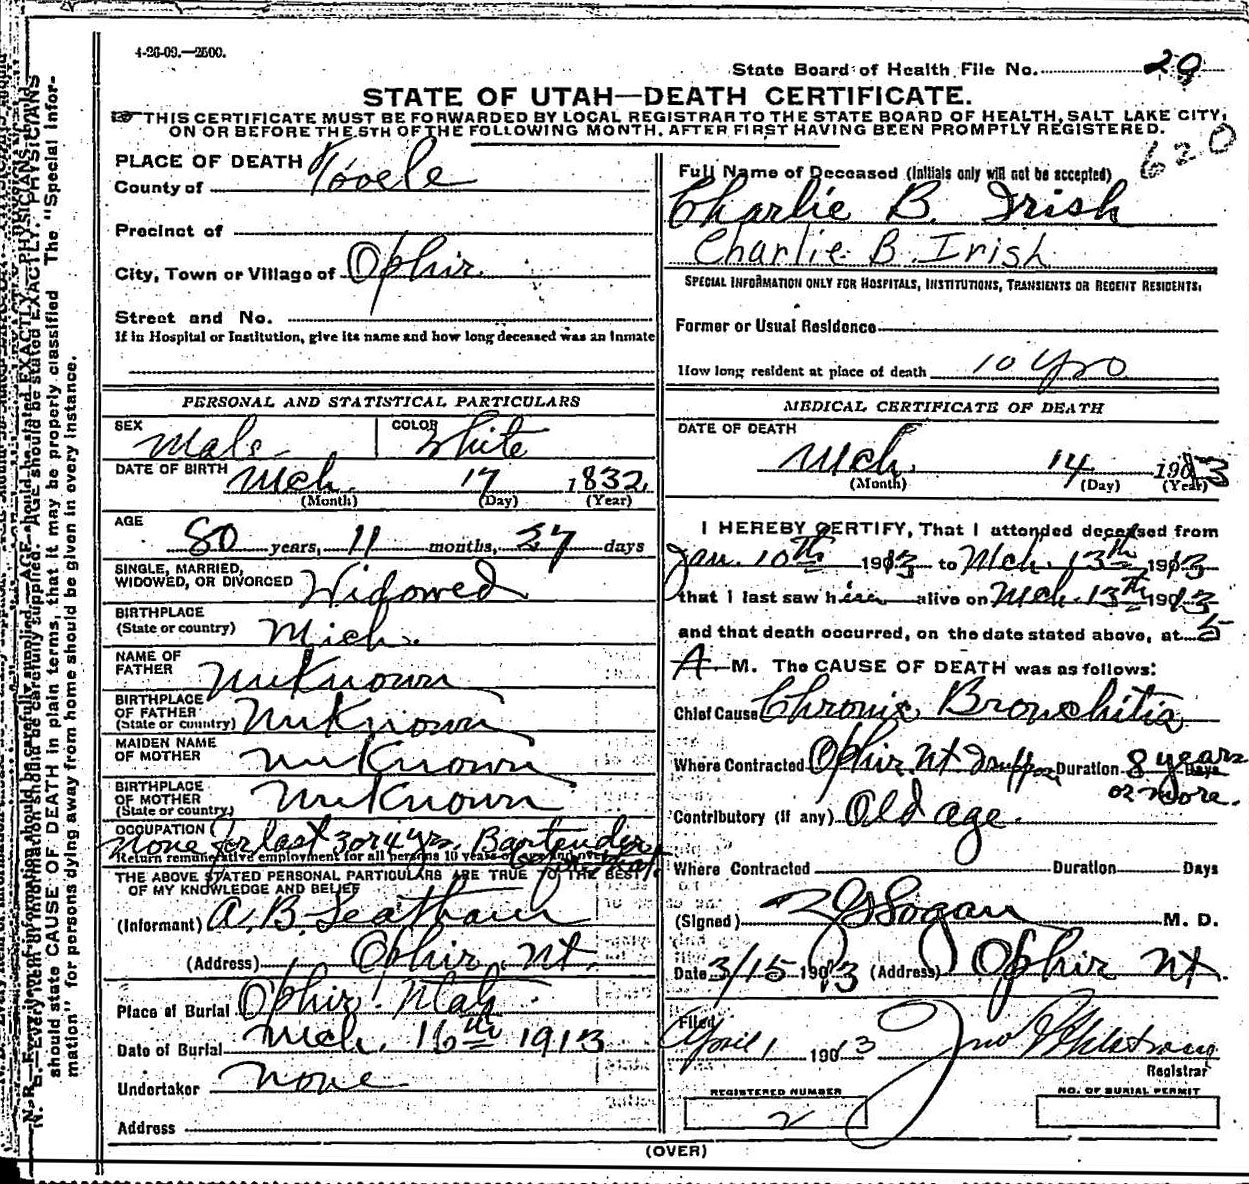 4-26-09.—2500.
State Board of Health File No. 29
STATE OF UTAH—DEATH CERTIFICATE.
THIS CERTIFICATE MUST BE FORWARDED BY LOCAL REGISTRAR TO THE STATE BOARD OF HEALTH, SALT LAKE CITY,
ON OR BEFORE THE 5TH OF THE FOLLOWING MONTH, AFTER FIRST HAVING BEEN PROMPTLY REGISTERED.
620
PLACE OF DEATH
County of Tooele
Precinct of
City, Town or Village of Ophir
Street and No.
If in Hospital or Institution, give its name and how long deceased was an inmate
PERSONAL AND STATISTICAL PARTICULARS
SEX Male COLOR White
DATE OF BIRTH Mch. 17 1832
(Month) (Day) (Year)
AGE 80 years, 11 months, 27 days
SINGLE, MARRIED,
WIDOWED, OR DIVORCED Widowed
BIRTHPLACE
(State or country) Mich.
NAME OF
FATHER UnKnown
BIRTHPLACE
OF FATHER
(State or country) UnKnown
MAIDEN NAME
OF MOTHER UnKnown
BIRTHPLACE
OF MOTHER
(State or country) UnKnown
OCCUPATION
None for last 3 or 4 yrs. Bartender
Return remunerative employment for all persons 10 years of age and over
THE ABOVE STATED PERSONAL PARTICULARS ARE TRUE TO THE BEST
OF MY KNOWLEDGE AND BELIEF
(Informant) A. B.
(Address) Ophir Ut.
Place of Burial Ophir Utah
Date of Burial Mch. 16th 1913
Undertaker None
Address
Full Name of Deceased (Initials only will not be accepted)
Charlie B. Irish
Charlie B. Irish
SPECIAL INFORMATION ONLY FOR HOSPITALS, INSTITUTIONS, TRANSIENTS OR RECENT RESIDENTS:
Former or Usual Residence
How long resident at place of death 10 yrs
MEDICAL CERTIFICATE OF DEATH
DATE OF DEATH
Mch. 14 1913
(Month) (Day) (Year)
I HEREBY CERTIFY, That I attended deceased from
Jan. 10th 1913 to Mch. 13th 1913
that I last saw him alive on Mch. 13th 1913
and that death occurred, on the date stated above, at 5
A M. The CAUSE OF DEATH was as follows:
Chief Cause Chronic Bronchitis
Where Contracted Ophir Ut Duration 8 years
or more.
Contributory (if any) Old age.
Where Contracted Duration Days
(Signed) M. D.
Date 3/15 1913 (Address) Ophir Ut.
Filed
April 1 1913
Registrar
REGISTERED NUMBER
2
NO. OF BURIAL PERMIT
(OVER)
N. B.—Every item of information should be carefully supplied. AGE should be stated EXACTLY. PHYSICIANS
should state CAUSE OF DEATH in plain terms, that it may be properly classified The "Special Infor-
mation" for persons dying away from home should be given in every instance.